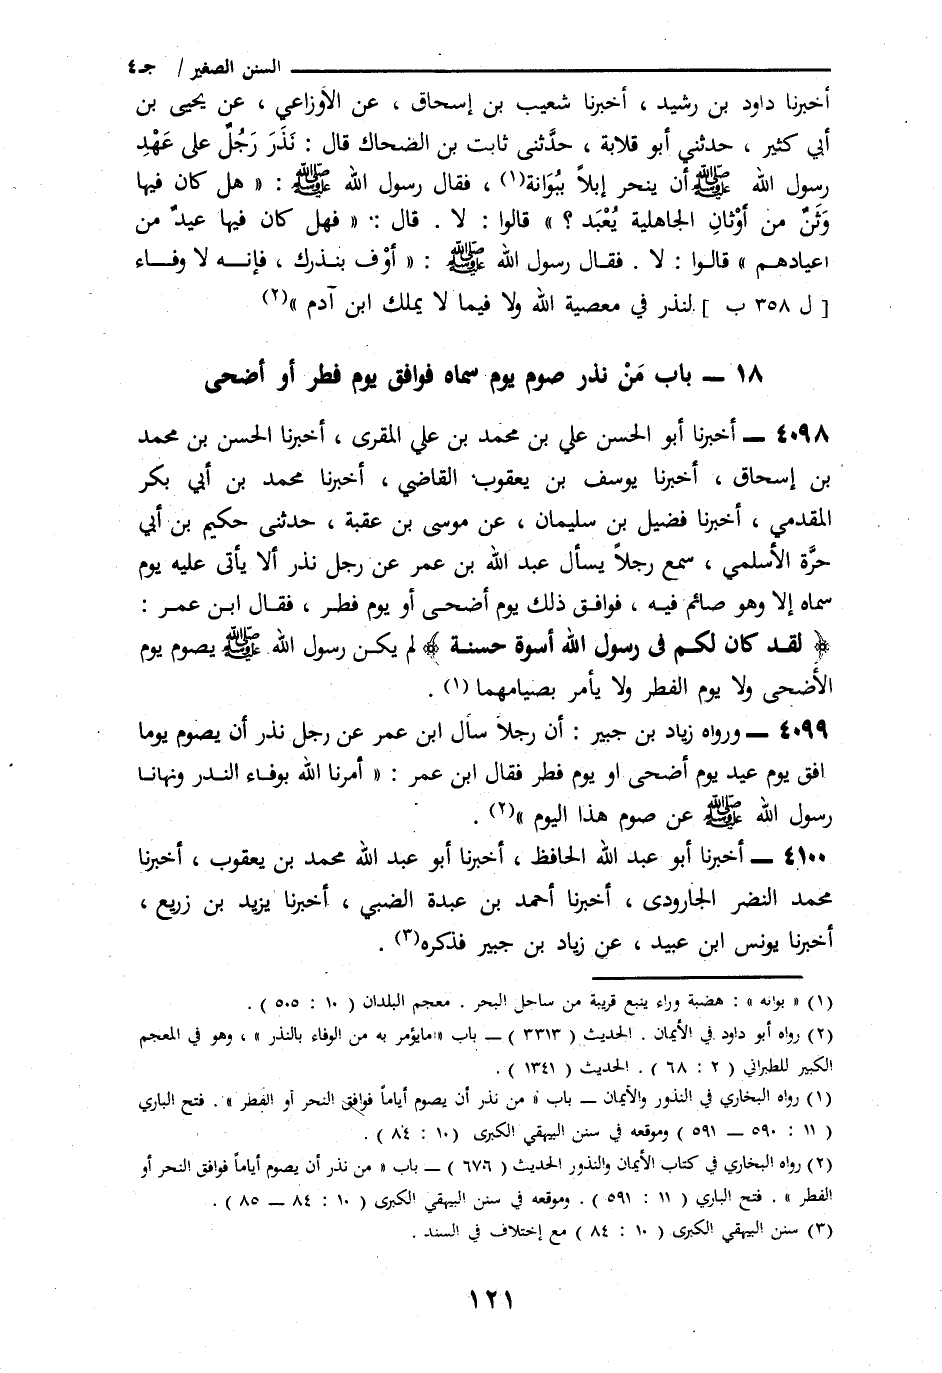 السنن الصغير / جـ٤
أخبرنا داود بن رشيد ، أخبرنا شعيب بن إسحاق ، عن الأوزاعي ، عن يحيى بن
أبي كثير ، حدثني أبو قلابة ، حدَّثنى ثابت بن الضحاك قال : نَذَرَ رَجُلٌ على عَهْدِ
رسول الله ﷺ أن ينحر إبلاً ببُوَانة(١) ، فقال رسول الله ﷺ : « هل كان فيها
وَثَنٌ من أوْثانِ الجاهلية يُعْبَد ؟ » قالوا : لا . قال : « فهل كان فيها عيدٌ من
اعيادهم » قالوا : لا . فقال رسول الله ﷺ : « أوْف بنذرك ، فإنه لا وفاء
[ ل ٣٥٨ ب ] لنذر في معصية الله ولا فيما لا يملك ابن آدم »(٢)
١٨ ــ باب مَنْ نذر صوم يوم سماه فوافق يوم فطر أو أضحى
٤٠٩٨ ــ أخبرنا أبو الحسن علي بن محمد بن علي المقرى ، أخبرنا الحسن بن محمد
بن إسحاق ، أخبرنا يوسف بن يعقوب القاضي ، أخبرنا محمد بن أبي بكر
المقدمي ، أخبرنا فضيل بن سليمان ، عن موسى بن عقبة ، حدثنى حكيم بن أبي
حرَّة الأسلمي ، سمع رجلاً يسأل عبد الله بن عمر عن رجل نذر ألا يأتى عليه يوم
سماه إلا وهو صائم فيه ، فوافق ذلك يوم أضحى أو يوم فطر ، فقال ابن عمر :
﴿ لقد كان لكم فى رسول الله أسوة حسنة ﴾ لم يكن رسول الله ﷺ يصوم يوم
الأضحى ولا يوم الفطر ولا يأمر بصيامهما (١) .
٤٠٩٩ ــ ورواه زياد بن جبير : أن رجلاً سأل ابن عمر عن رجل نذر أن يصوم يوما
افق يوم عيد يوم أضحى او يوم فطر فقال ابن عمر : « أمرنا الله بوفاء النذر ونهانا
رسول الله ﷺ عن صوم هذا اليوم »(٢) .
٤١٠٠ ــ أخبرنا أبو عبد الله الحافظ ، أخبرنا أبو عبد الله محمد بن يعقوب ، أخبرنا
محمد النضر الجارودى ، أخبرنا أحمد بن عبدة الضبي ، أخبرنا يزيد بن زريع ،
أخبرنا يونس ابن عبيد ، عن زياد بن جبير فذكره(٣) .
(١) « بوانه » : هضبة وراء ينبع قريبة من ساحل البحر . معجم البلدان ( ١٠ : ٥٠٥ ) .
(٢) رواه أبو داود في الأيمان . الحديث ( ٣٣١٣ ) ــ باب «امايؤمر به من الوفاء بالنذر » ، وهو في المعجم
الكبير للطبراني ( ٢ : ٦٨ ) . الحديث ( ١٣٤١ ) .
(١) رواه البخاري في النذور والأيمان ــ باب « من نذر أن يصوم أياماً فوافق النحر أو الفطر » . فتح الباري
( ١١ : ٥٩٠ ــ ٥٩١ ) وموقعه في سنن البيهقي الكبرى (١٠ : ٨٤ ) .
(٢) رواه البخاري في كتاب الأيمان والنذور الحديث ( ٦٧٠٦ ) ــ باب « من نذر أن يصوم أياماً فوافق النحر أو
الفطر » . فتح الباري ( ١١ : ٥٩١ ) . وموقعه في سنن البيهقي الكبرى ( ١٠ : ٨٤ ــ ٨٥ ) .
(٣) سنن البيهقي الكبرى ( ١٠ : ٨٤ ) مع إختلاف في السند .
١٢١